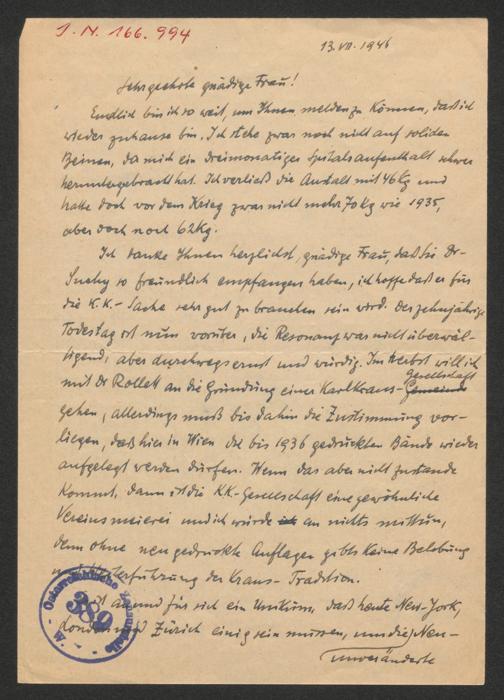 J. N. 166.994
13.VII.1946
Sehr geehrte gnädige Frau!
Endlich bin ich so weit, um Ihnen melden zu können, daß ich
wieder zuhause bin. Ich stehe zwar noch nicht auf soliden
Beinen, da mich ein dreimonatiger Spitalsaufenthalt schwer
heruntergebracht hat. Ich verließ die Anstalt mit 46 kg und
hatte doch vor dem Krieg zwar nicht mehr 70 kg wie 1935,
aber doch noch 62 kg.
Ich danke Ihnen herzlichst, gnädige Frau, daß Sie Dr.
Suchy so freundlich empfangen haben, ich hoffe daß er für
die K.K.- Sache sehr gut zu brauchen sein wird. Der zehnjährige
Todestag ist nun vorüber, die Resonanz war nicht überwäl-
tigend, aber durchwegs ernst und würdig. Im Herbst will ich
mit Dr Rollett an die Gründung einer Karl Kraus- Gemeinde Gesellschaft
gehen, allerdings muß bis dahin die Zustimmung vor-
liegen, daß hier in Wien die bis 1936 gedruckten Bände wieder
aufgelegt werden dürfen. Wenn das aber nicht zustande
kommt, dann ist die KK-Gesellschaft eine gewöhnliche
Vereinsmeierei und ich würde ich an nichts mittun,
denn ohne neu gedruckte Auflagen gibts keine Belebung
und Weiterführung der Kraus-Tradition.
ist an und für sich ein Unikum, daß heute New-York,
London und Zürich einig sein müssen, um die Neu-
unveränderte
Österreichische
389
W.